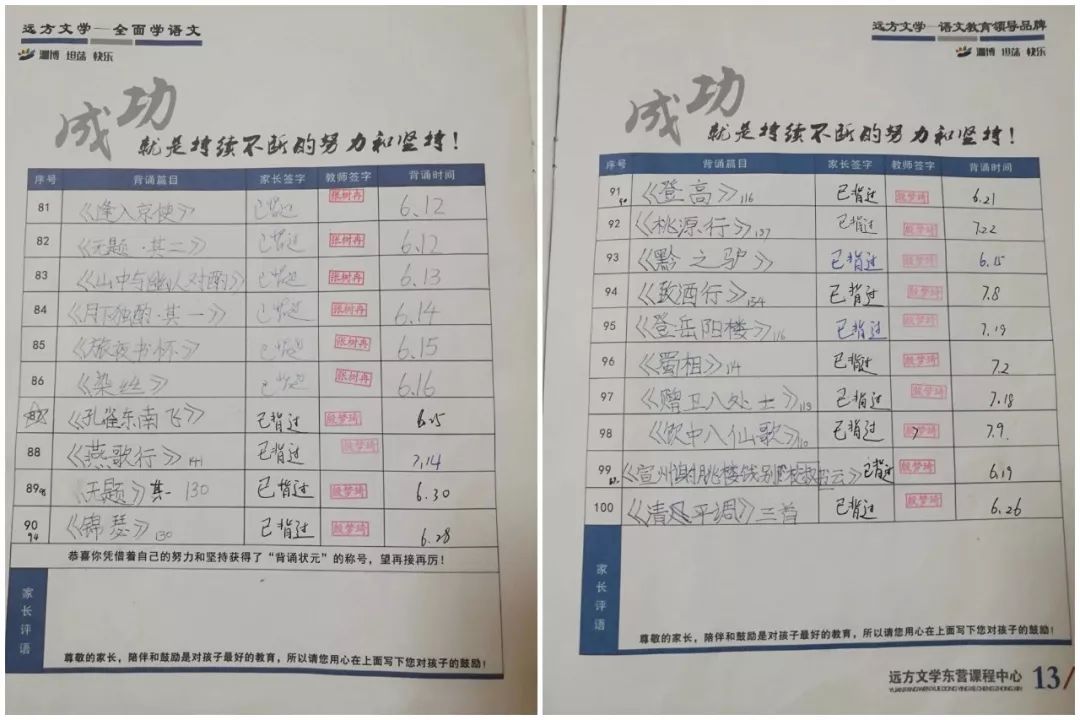 远方文学—全面学语文
温博 坦荡 快乐
成功
就是持续不断的努力和坚持！
序号 背诵篇目 家长签字 教师签字 背诵时间
81 《逢入京使》 已背过 张树冉 6.12
82 《无题·其二》 已背过 张树冉 6.12
83 《山中与幽人对酌》 已背过 张树冉 6.13
84 《月下独酌·其一》 已背过 张树冉 6.14
85 《旅夜书怀》 已背过 张树冉 6.15
86 《染丝》 已背过 张树冉 6.16
《孔雀东南飞》 已背过 殷梦琦 6.25
88 《燕歌行》141 已背过 殷梦琦 7.14
89 《无题》其一 130 已背过 殷梦琦 6.30
90 94 《锦瑟》130 已背过 殷梦琦 6.28
恭喜你凭借着自己的努力和坚持获得了“背诵状元”的称号，望再接再厉！
家长评语
尊敬的家长，陪伴和鼓励是对孩子最好的教育，所以请您用心在上面写下您对孩子的鼓励！
远方文学—语文教育领导品牌
温博 坦荡 快乐
成功
就是持续不断的努力和坚持！
序号 背诵篇目 家长签字 教师签字 背诵时间
91 《登高》116 已背过 殷梦琦 6.21
92 《桃源行》137 已背过 殷梦琦 7.22
93 《黔之驴》 已背过 殷梦琦 6.15
94 《致酒行》134 已背过 殷梦琦 7.8
95 《登岳阳楼》116 已背过 殷梦琦 7.19
96 《蜀相》114 已背过 殷梦琦 7.2
97 《赠卫八处士》113 已背过 殷梦琦 7.18
98 《饮中八仙歌》110 已背过 殷梦琦 7.9
99 《宣州谢朓楼饯别校叔云》 已背过 殷梦琦 6.19
100 《清风平调》三首 已背过 殷梦琦 6.26
家长评语
尊敬的家长，陪伴和鼓励是对孩子最好的教育，所以请您用心在上面写下您对孩子的鼓励！
远方文学东营课程中心 13/
YUANFANGWENXUE DONGYINGKECHENGZHONGXIN